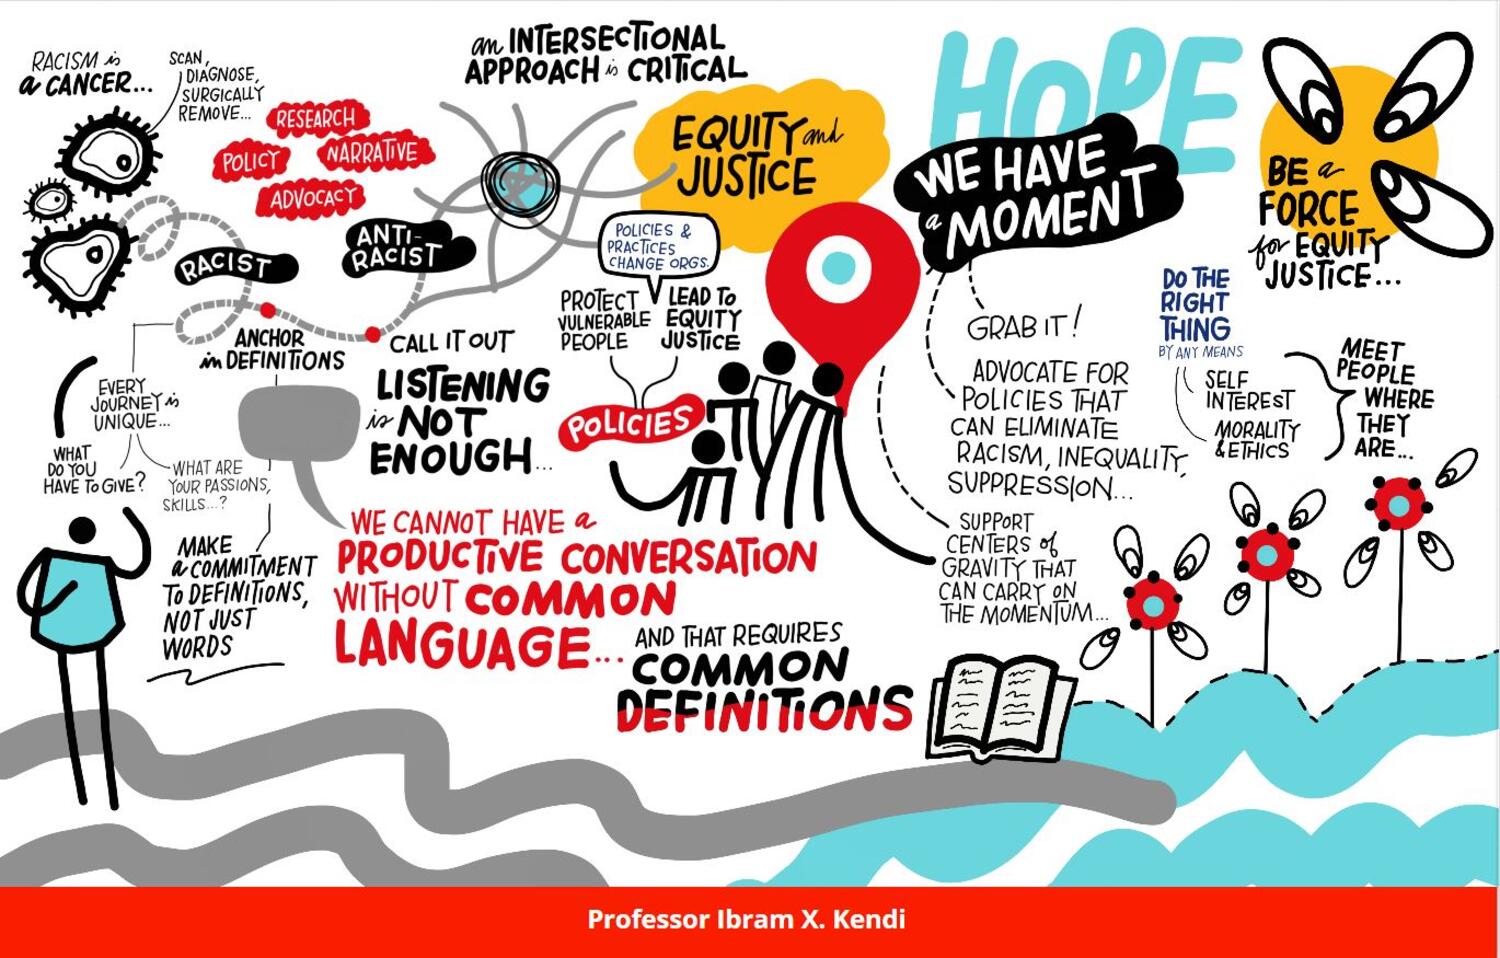 RACISM is
a CANCER...
SCAN,
DIAGNOSE,
SURGICALLY
REMOVE...
RESEARCH
POLICY
NARRATIVE
ADVOCACY
an INTERSECTIONAL
APPROACH is CRITICAL
EQUITY and
JUSTICE
HOPE
WE HAVE
a MOMENT
BE a
FORCE
for EQUITY
JUSTICE...
RACIST
ANTI-
RACIST
ANCHOR
in DEFINITIONS
EVERY
JOURNEY is
UNIQUE...
WHAT
DO YOU
HAVE TO GIVE?
WHAT ARE
YOUR PASSIONS,
SKILLS...?
MAKE
a COMMITMENT
TO DEFINITIONS,
NOT JUST
WORDS
CALL IT OUT
LISTENING
is NOT
ENOUGH...
POLICIES &
PRACTICES
CHANGE ORGS.
PROTECT
VULNERABLE
PEOPLE
LEAD TO
EQUITY
JUSTICE
POLICIES
WE CANNOT HAVE a
PRODUCTIVE CONVERSATION
WITHOUT COMMON
LANGUAGE...
AND THAT REQUIRES
COMMON
DEFINITIONS
GRAB IT!
ADVOCATE FOR
POLICIES THAT
CAN ELIMINATE
RACISM, INEQUALITY,
SUPPRESSION...
SUPPORT
CENTERS of
GRAVITY THAT
CAN CARRY ON
THE MOMENTUM...
DO THE
RIGHT
THING
BY ANY MEANS
SELF
INTEREST
MORALITY
& ETHICS
MEET
PEOPLE
WHERE
THEY
ARE...
Professor Ibram X. Kendi